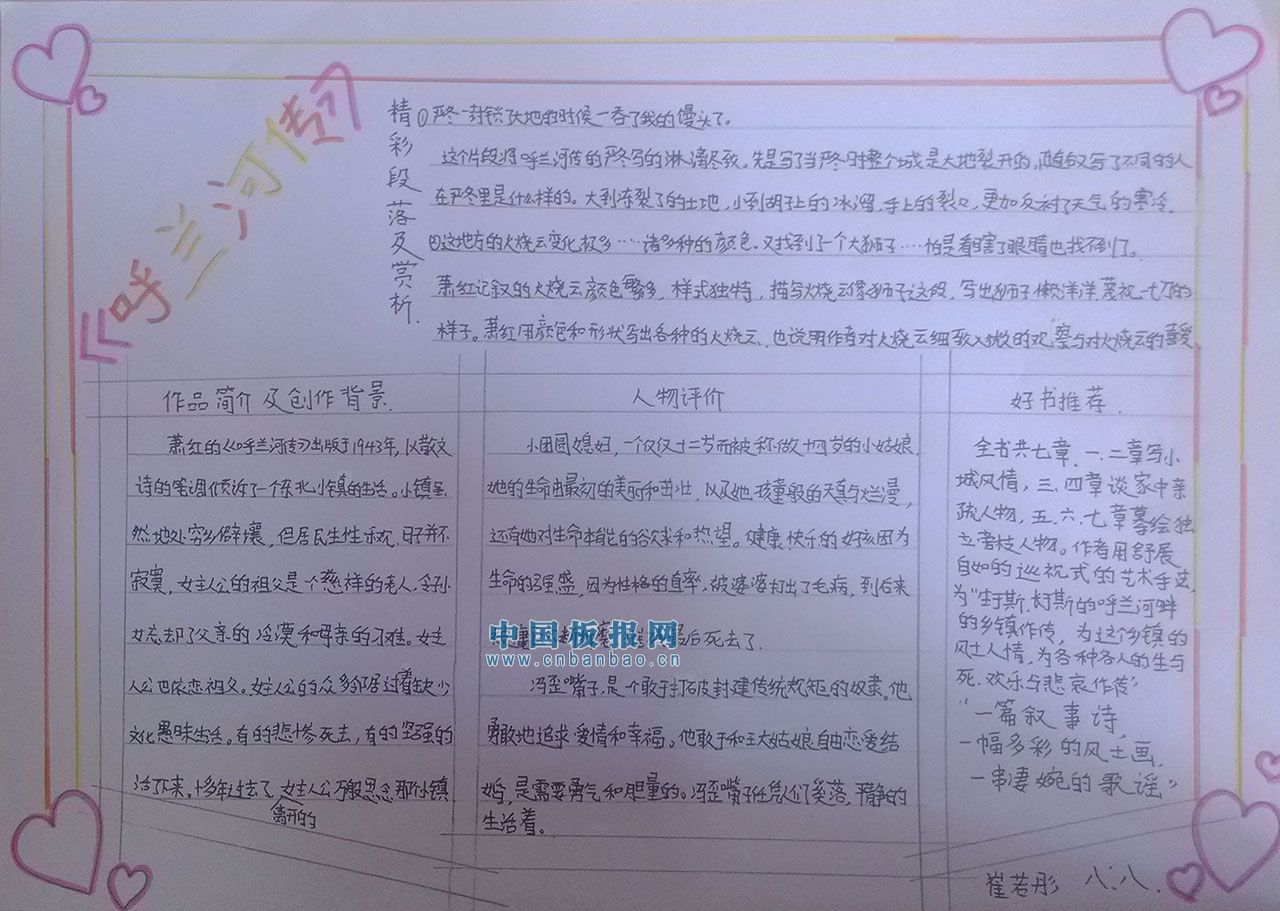 《呼兰河传》
精彩段落及赏析
①严冬一封锁了大地的时候一吞了我的馒头了。
这个片段将呼兰河传的严冬写的淋漓尽致。先是写了当严冬时整个城是大地裂开的,随后又写了不同的人
在严冬里是什么样的。大到冻裂了的土地,小到胡子上的冰溜,手上的裂口,更加反衬了天气的寒冷.
②这地方的火烧云变化极多……诸多种的颜色.又找到了一个大狮子……怕是看瞎了眼睛也找不到了。
萧红记叙的火烧云颜色繁多,样式独特,描写火烧云像狮子这段,写出狮子懒洋洋,蔑视一切的
样子。萧红用颜色和形状写出各种的火烧云,也说明作者对火烧云细致入微的观察与对火烧云的喜爱
作品简介及创作背景.
萧红的《呼兰河传》出版于1943年,以散文
诗的笔调倾诉了一个东北小镇的生活。小镇虽
然地处穷乡僻壤,但居民生性乐观,日子并不
寂寞,女主人公的祖父是个慈祥的老人,令孙
女忘却了父亲的冷漠和母亲的刁难。女主
人公也依恋祖父。女主人公的众多邻居过着缺少
文化愚昧生活。有的悲惨死去,有的坚强的
活了下来。十多年过去了,离开的女主人公仍思念那个小镇.
人物评价
小团圆媳妇,一个仅仅十二岁而被称做十四岁的小姑娘.
她的生命由最初的美丽和茁壮,以及她孩童般的天真与烂漫,
还有她对生命本能的谷欠求和热望。健康快乐的好孩因为
生命的强盛,因为性格的直率,被婆婆打出了毛病,到后来
后死去了.
冯歪嘴子,是个敢于打破封建传统规矩的奴隶.他
勇敢地追求爱情和幸福。他敢于和王大姑娘自由恋爱结
婚,是需要勇气和胆量的。冯歪嘴子任凭人们奚落,平静的
生活着。
好书推荐.
全书共七章.一.二章写小
城风情,三.四章谈家中亲
疏人物,五.六.七章摹绘独
立旁枝人物。作者用舒展
自如的巡视式的艺术手法,
为"生于斯.长于斯的呼兰河畔
的乡镇作传,为这个乡镇的
风土人情,为各种各人的生与
死.欢乐与悲哀作传"
"一篇叙事诗,
一幅多彩的风土画.
一串凄婉的歌谣"
崔若彤 八.八.
中国板报网
www.cnbanbao.cn